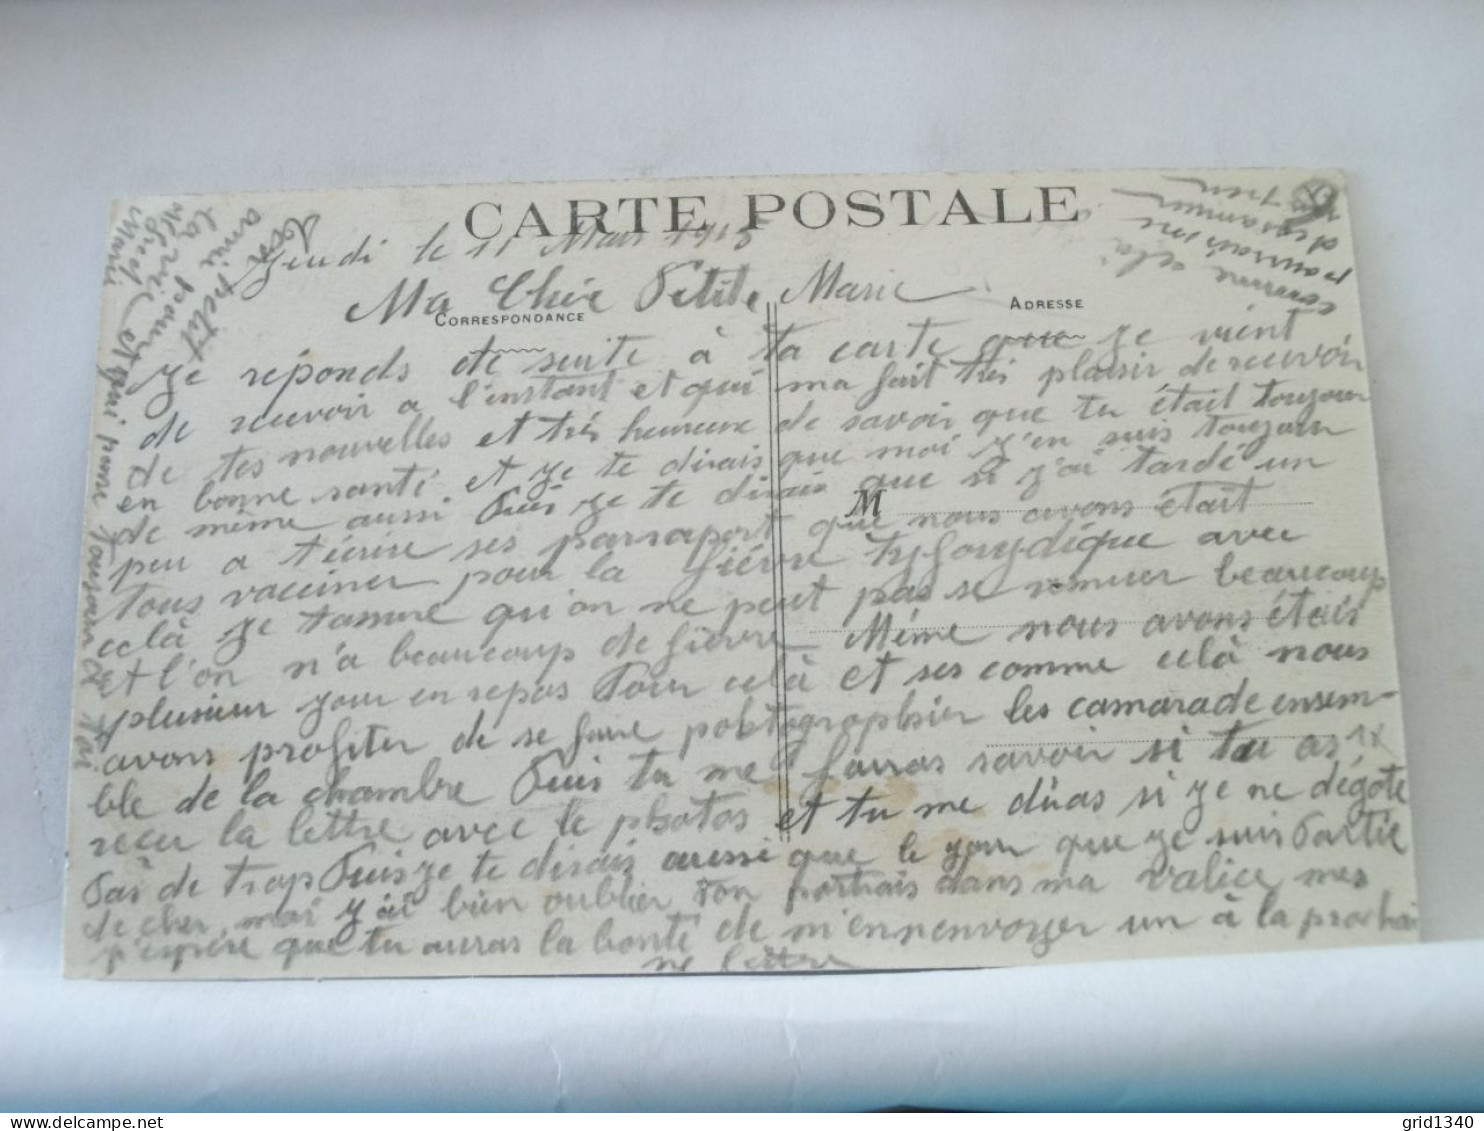 CARTE POSTALE
Jeudi le 11 Mars 1915
Ma Chère Petite Marie
CORRESPONDANCE
ADRESSE
Je réponds de suite à ta carte que je vient
de recevoir a l'instant et qui ma fait très plaisir de recevoir
de tes nouvelles et très heureux de savoir que tu était toujour
en bonne santé et je te dirais que moi j'en suis toujour
de même aussi. Puis je te dirais que si j'ai tardé un
M
peu a t'écrire ses parraport que nous avons était
tous vacciner pour la fièvre typhoydique avec
celà je tassure qu'on ne peut pas se remuer beaucoup
et l'on n'a beaucoup de fièvre Même nous avons étais
plusieur jour en repos Pour celà et ses comme celà nous
avons profiter de se faire photographier les camarade ensem-
ble de la chambre Puis tu me fairas savoir si tu as
reçu la lettre avec le photos et tu me diras si je ne dégote
Pas de trop Puis je te dirais aussi que le jour que je suis Partie
de cher moi j'ai bien oublier ton portrais dans ma valice mes
j'espère que tu auras la bonté de m'ennenvoyer un à la prochai
ne lettre
comme celà
pourrais me
Ton petit
ami pour
la vie
Alfred et
Marie
qui pense toujour à toi
grid1340